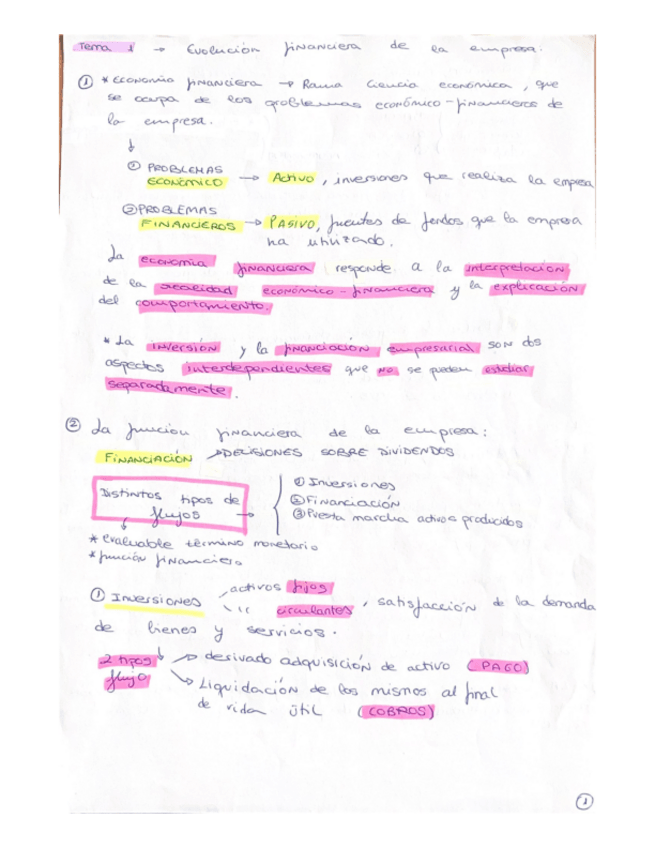 Tema 1 → Evolución financiera de la empresa.
① * Economía financiera → Rama Ciencia económica, que
se ocupa de los problemas económico-financieros de
la empresa.
↓
① PROBLEMAS
ECONÓMICO → Activo, inversiones que realiza la empresa
② PROBLEMAS
FINANCIEROS → PASIVO, fuentes de fondos que la empresa
ha utilizado.
La economía financiera responde a la interpretación
de la realidad económico-financiera y la explicación
del comportamiento.
* La inversión y la financiación empresarial son dos
aspectos interdependientes que no se pueden estudiar
separadamente.
② La función financiera de la empresa:
FINANCIACIÓN → DECISIONES SOBRE DIVIDENDOS
Distintos tipos de
flujos →
① Inversiones
② Financiación
③ Puesta marcha activos producidos
* evaluable término monetario
* función financiero
① Inversiones activos fijos
" circulantes, satisfacción de la demanda
de bienes y servicios.
2 tipos → derivado adquisición de activo (PAGO)
flujo → Liquidación de los mismos al final
de vida útil (COBROS)
1